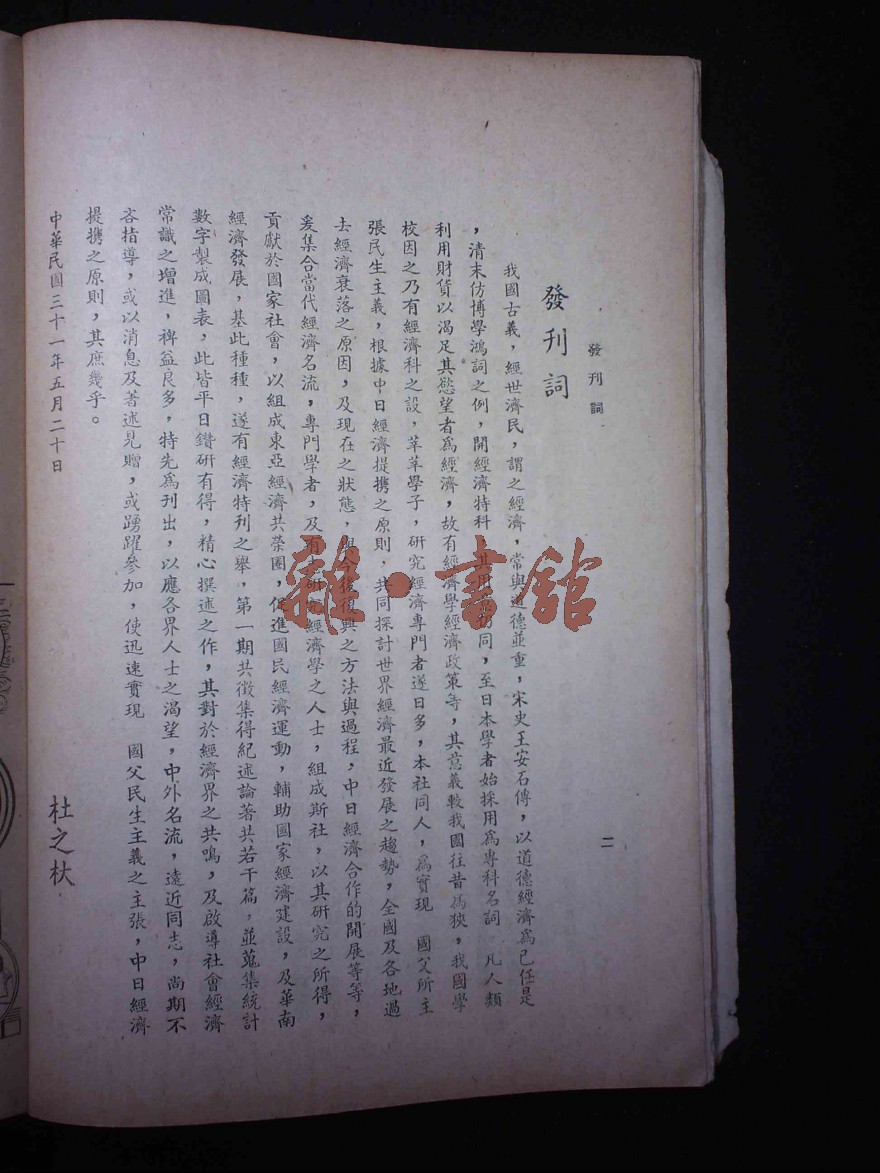 發刊詞
二
發刊詞
我國古義，經世濟民，謂之經濟，常與道德並重，宋史王安石傳，以道德經濟為己任是
，清末仿博學鴻詞之例，開經濟特科，其用 同，至日本學者始採用為專科名詞 凡人類
利用財貨以渴足其慾望者為經濟，故有經濟學經濟政策等，其意義較我國往昔為狹，我國學
校因之乃有經濟科之設，莘莘學子，研究經濟專門者遂日多，本社同人，為實現 國父所主
張民生主義，根據中日經濟提携之原則，共同探討世界經濟最近發展之趨勢，全國及各地過
去經濟衰落之原因，及現在之狀態，與今後復興之方法與過程，中日經濟合作的開展等等，
爰集合當代經濟名流，專門學者，及有志研究經濟學之人士，組成斯社，以其研究之所得，
貢獻於國家社會，以組成東亞經濟共榮圈，促進國民經濟運動，輔助國家經濟建設，及華南
經濟發展，基此種種，遂有經濟特刊之舉，第一期共徵集得紀述論著共若干篇，並蒐集統計
數字製成圖表，此皆平日鑽研有得，精心撰述之作，其對於經濟界之共鳴，及啟導社會經濟
常識之增進，裨益良多，特先為刊出，以應各界人士之渴望，中外名流，遠近同志，尚期不
吝指導，或以消息及著述見贈，或踴躍參加，使迅速實現 國父民生主義之主張，中日經濟
提携之原則，其庶幾乎。
中華民國三十一年五月二十日
杜之杕
雜·書館